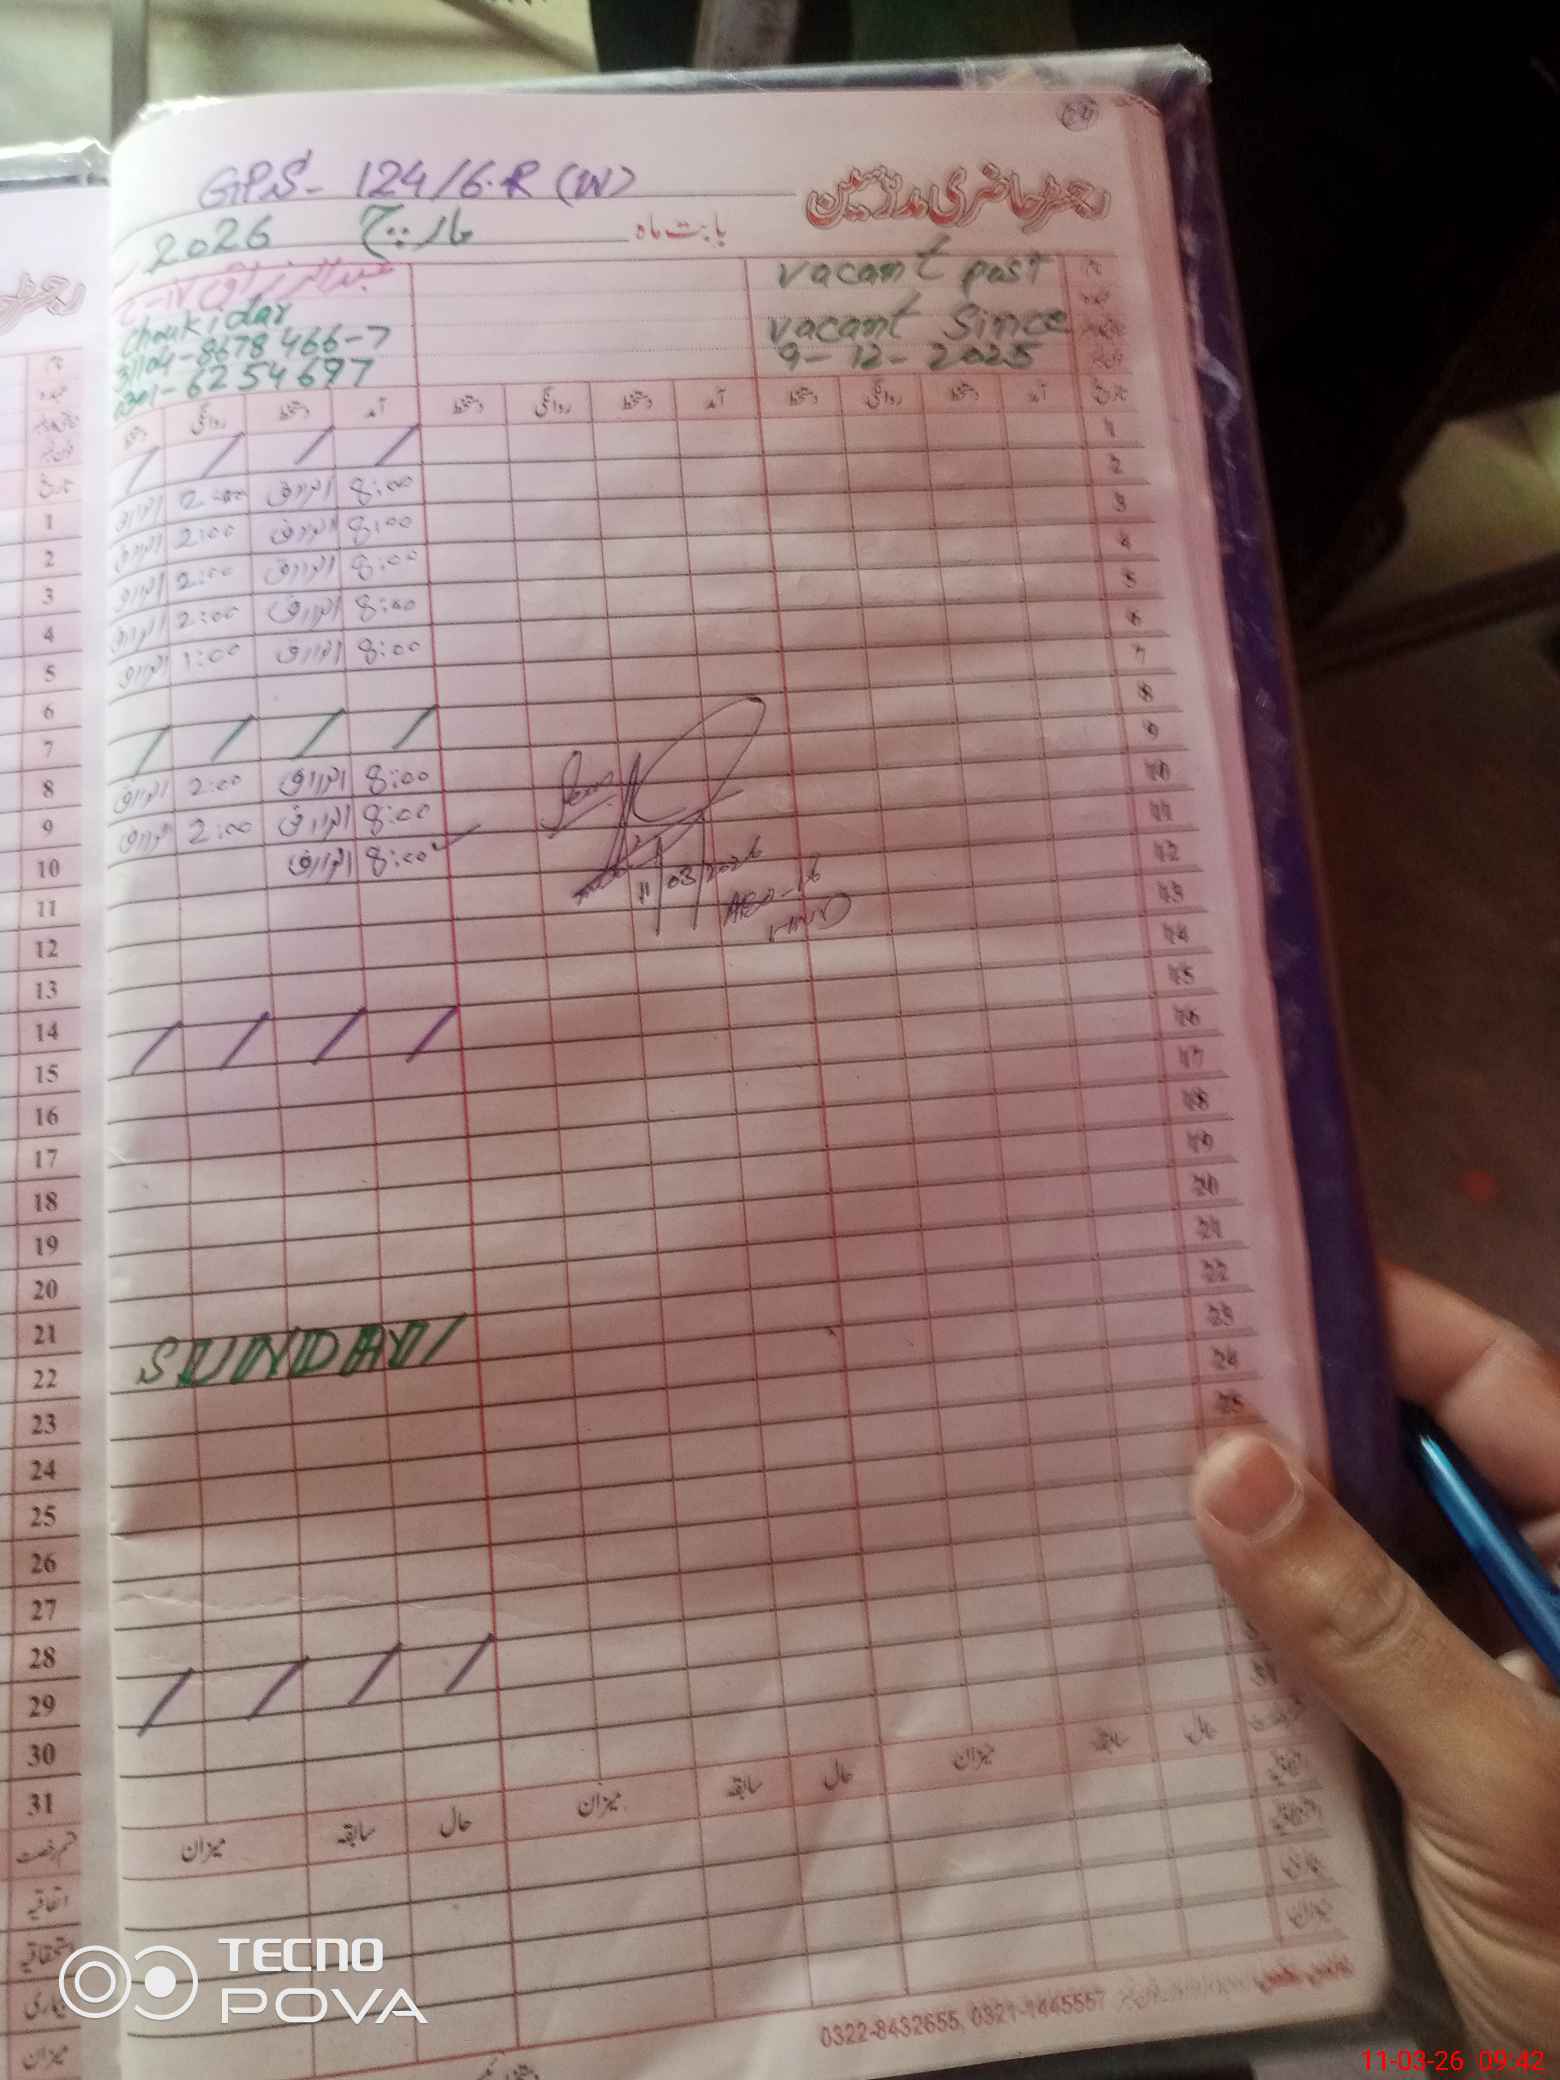 GPS- 124/6.R (W)
رجسٹر حاضری مدرسین
بابت ماہ مارچ 2026
vacant post
vacant Since
9-12-2025
عبدالرزاق
Choukidar
31104-8678466-7
6254697
تاریخ آمد دستخط روانگی دستخط آمد دستخط روانگی دستخط آمد دستخط روانگی دستخط
1
2 8:00 الرزاق 2:00 الرزاق
3 8:00 الرزاق 2:00 الرزاق
4 8:00 الرزاق 2:00 الرزاق
5 8:00 الرزاق 2:00 الرزاق
6 8:00 الرزاق 1:00 الرزاق
7
8
9 8:00 الرزاق 2:00 الرزاق
10 8:00 الرزاق 2:00 الرزاق
11 8:00 الرزاق
11/03/2026
12
13
14
15
16
17
18
19
20
21
22 SUNDAY
23
24
25
حال سابقہ میزان حال سابقہ میزان حال سابقہ میزان
0322-8432655, 0321-1445557
تاریخ
1
2
3
4
5
6
7
8
9
10
11
12
13
14
15
16
17
18
19
20
21
22
23
24
25
26
27
28
29
30
31
قسم رخصت
اتفاقیہ
استحقاقیہ
بیماری
میزان
TECNO
POVA
11-03-26 09:42